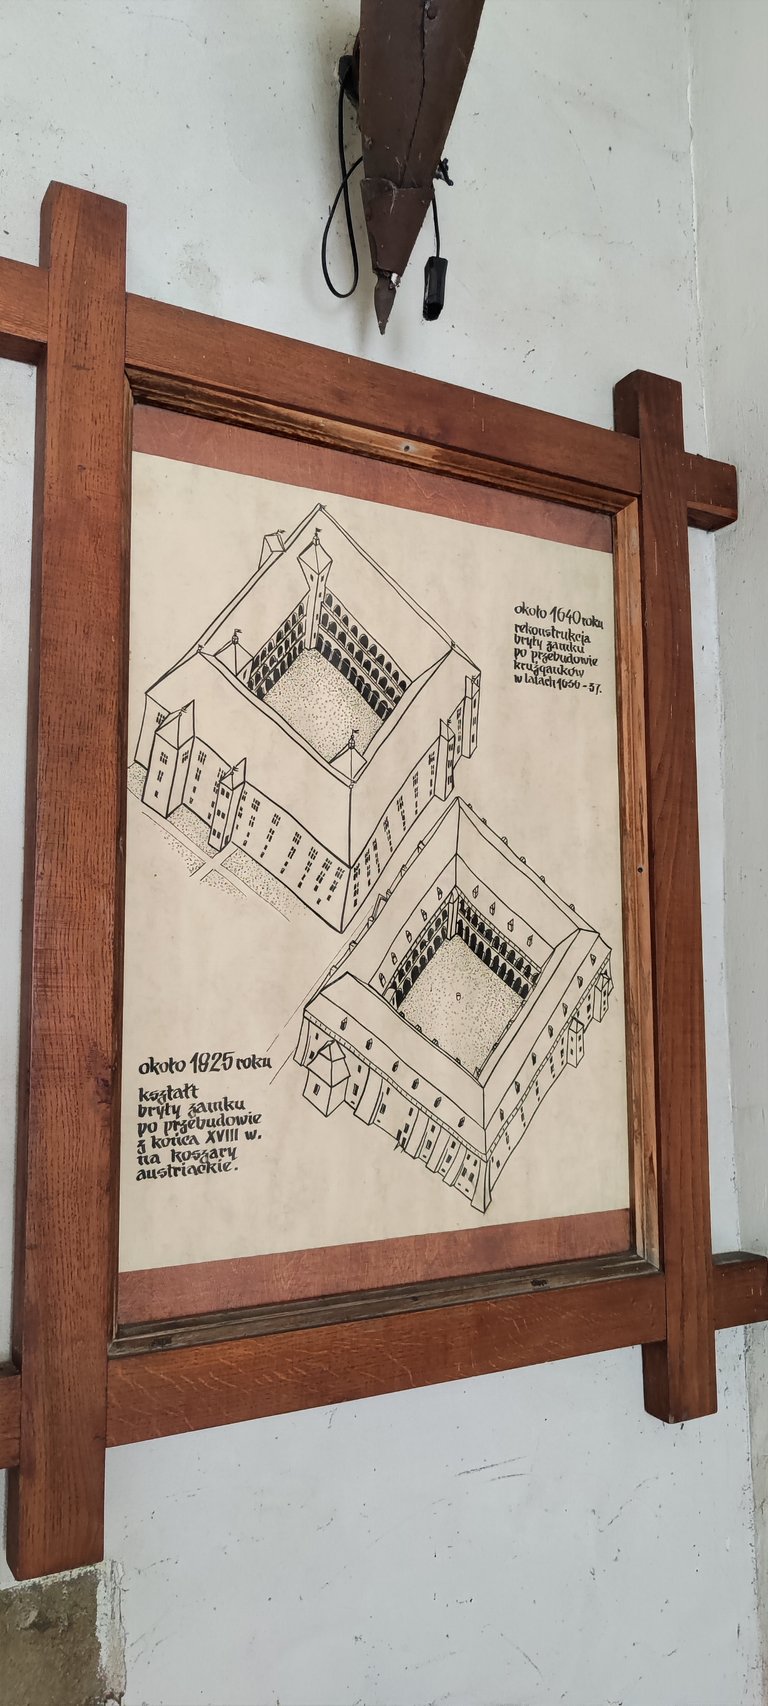 około 1640 roku
rekonstrukcja
bryły zamku
po przebudowie
krużganków
w latach 1636-37.
około 1825 roku
kształt
bryły zamku
po przebudowie
z końca XVIII w.
na koszary
austriackie.